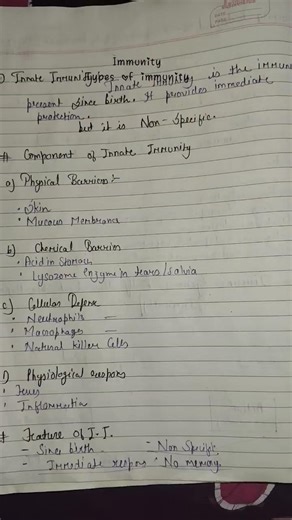 Immunity
Types of immunity
1) Innate Immunity Innate is the immune
present since birth. It provides immediate
protection.
but it is Non-Specific.
# Component of Innate Immunity
a) Physical Barriers:-
• Skin
• Mucous Membrane
b) Chemical Barrier
• Acid in Stomach
• Lysozome Enzyme in tears/saliva
c) Cellular Defense
• Neutrophils —
• Macrophages —
• Natural Killer Cells
Physiological respons
• Fever
• Inflammation
# Feature of I.I.
- Since birth - Non Specific
- Immediate respons • No memory